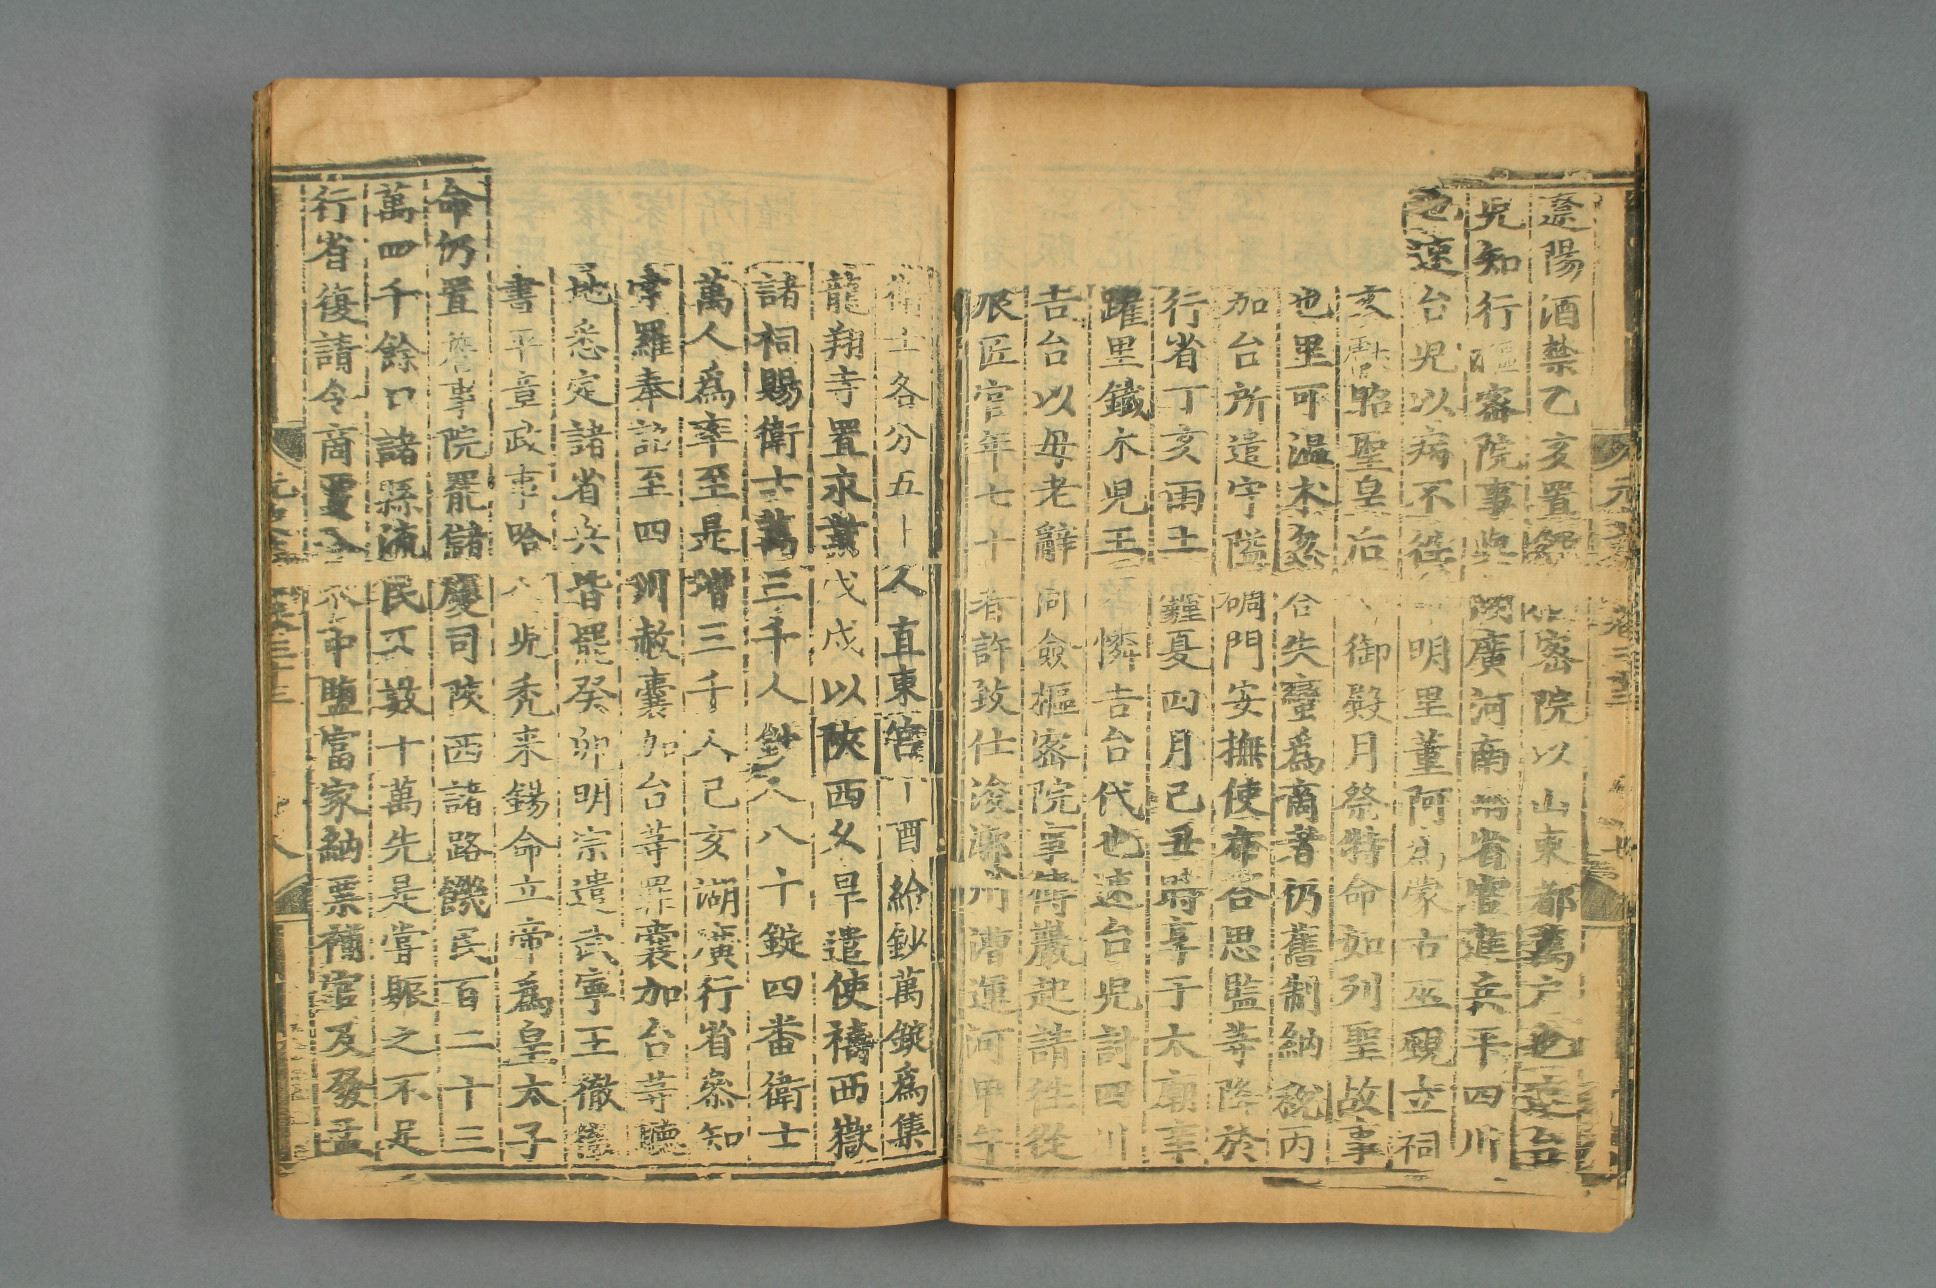 遼陽酒禁乙亥置 密院以山東都萬戶也速台
兒知行樞密院事與湖廣河南兩省官進兵平四川
也速台兒以病不往 明里董阿爲蒙古巫覡立祠
亥 昭聖皇后 御殿月祭特命如列聖故事
也里可溫木忽合失蠻爲商者仍舊制納稅丙
加台所遣守隘碉門安撫使布合思監等降於
行省丁亥雨土霾夏四月己丑時享于太廟率
躍里鐵木兒王 憐吉台代也速台兒討四川
吉台以母老辭同僉樞密院事傅巖起請往從
衆匠官年七十者許致仕浚漷州漕運河甲午
衛士各分五十人直東宮丁酉給鈔萬錠爲集
龍翔寺置永業戊戌以陝西久旱遣使禱西嶽
諸祠賜衛士萬三千人鈔人八十錠四番衛士
萬人爲率至是增三千人己亥湖廣行省參知
孛羅奉詔至四川赦囊加台等罪囊加台等聽
地悉定諸省兵皆罷癸卯明宗遣武寧王徹徹
書平章政事哈八兒禿來錫命立帝爲皇太子
命仍置詹事院罷儲慶司陝西諸路饑民百二十三
萬四千餘口諸縣流民又數十萬先是嘗賑之不足
行省復請令商賈入 中鹽富家納粟補官及發孟